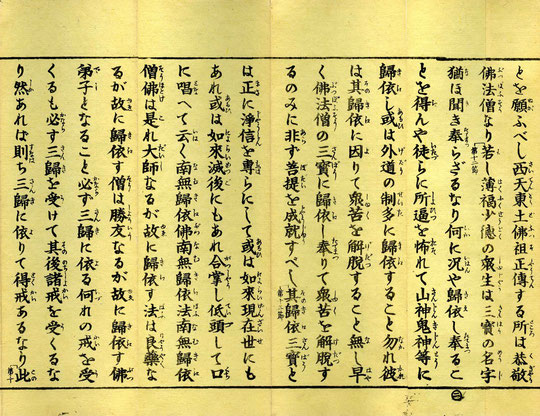 とを願ふべし西天東土佛祖正傳する所は恭敬
佛法僧なり若し薄福少德の衆生は三寶の名字
猶ほ聞き奉らざるなり何に況や歸依し奉るこ
とを得んや徒らに所逼を怖れて山神鬼神等に
歸依し或は外道の制多に歸依すること勿れ彼
は其歸依に因りて衆苦を解脫すること無し早
く佛法僧の三寶に歸依し奉りて衆苦を解脫す
るのみに非ず菩提を成就すべし其歸依三寶と
は正に淨信を專らにして或は如來現在世にも
あれ或は如來滅後にもあれ合掌し低頭して口
に唱へて云く南無歸依佛南無歸依法南無歸依
僧佛は是れ大師なるが故に歸依す法は良藥な
るが故に歸依す僧は勝友なるが故に歸依す佛
弟子となること必ず三歸に依る何れの戒を受
くるも必ず三歸を受けて其後諸戒を受くるな
り然あれば則ち三歸に依りて得戒あるなり此